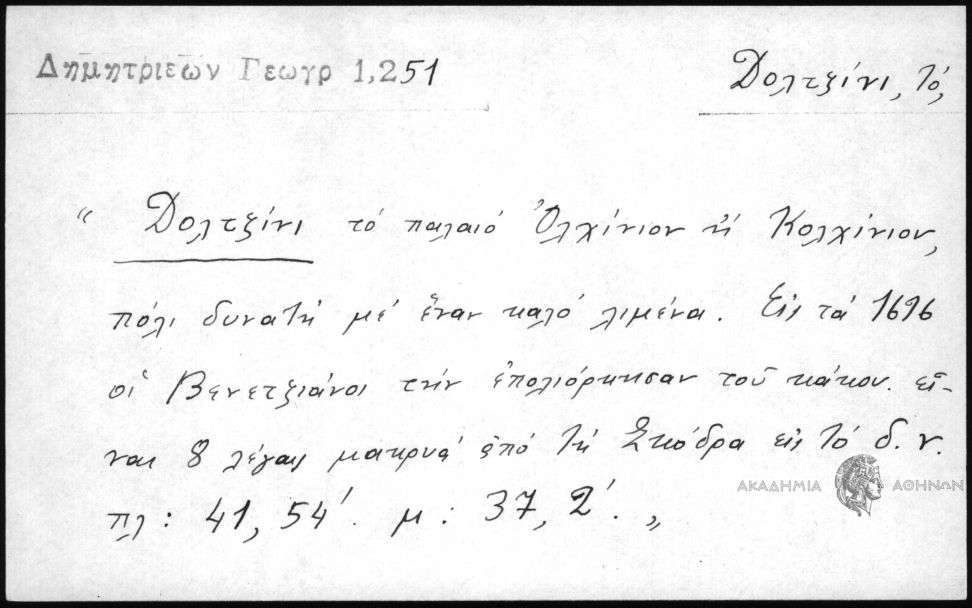 Δημητριεων Γεωγρ 1,251
Δολτζίνι, τό,
“ Δολτζίνι τό παλαιό Ὀλχίνιον ἤ Κολχίνιον,
πόλι δυνατή μέ ἕναν καλό λιμένα. Εἰς τά 1696
οἱ Βενετζιάνοι τήν ἐπολιόρκησαν τοῦ κάκου. εἶ-
ναι 8 λέγαις μακρυά ἀπό τή Σκόδρα εἰς τό δ. ν.
πλ: 41, 54′. μ: 37, 2′. „
ΑΚΑΔΗΜΙΑ ΑΘΗΝΩΝ